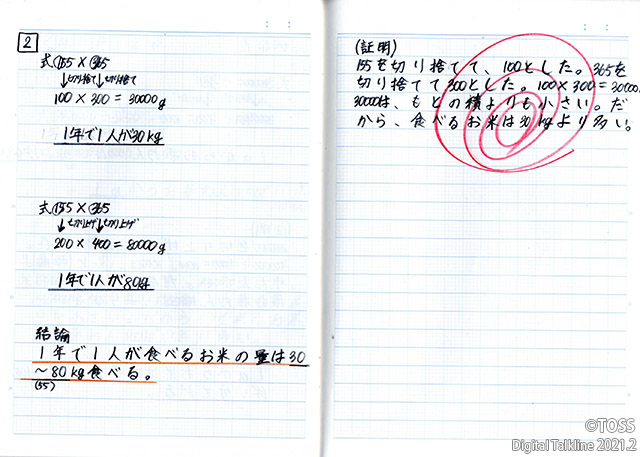 2
式 155 × 365
↓切り捨て ↓切り捨て
100 × 300 = 30000g
1年で1人が30kg
式 155 × 365
↓切り上げ ↓切り上げ
200 × 400 = 80000g
1年で1人が80kg
結論
1年で1人が食べるお米の量は30
〜80kg食べる。
(55)
(証明)
155を切り捨てて、100とした。365を
切り捨てて300とした。100×300=30000
30000は、もとの積よりも小さい。だ
から、食べるお米は30kgより多い。
©TOSS
Digital Talkline 2021.2